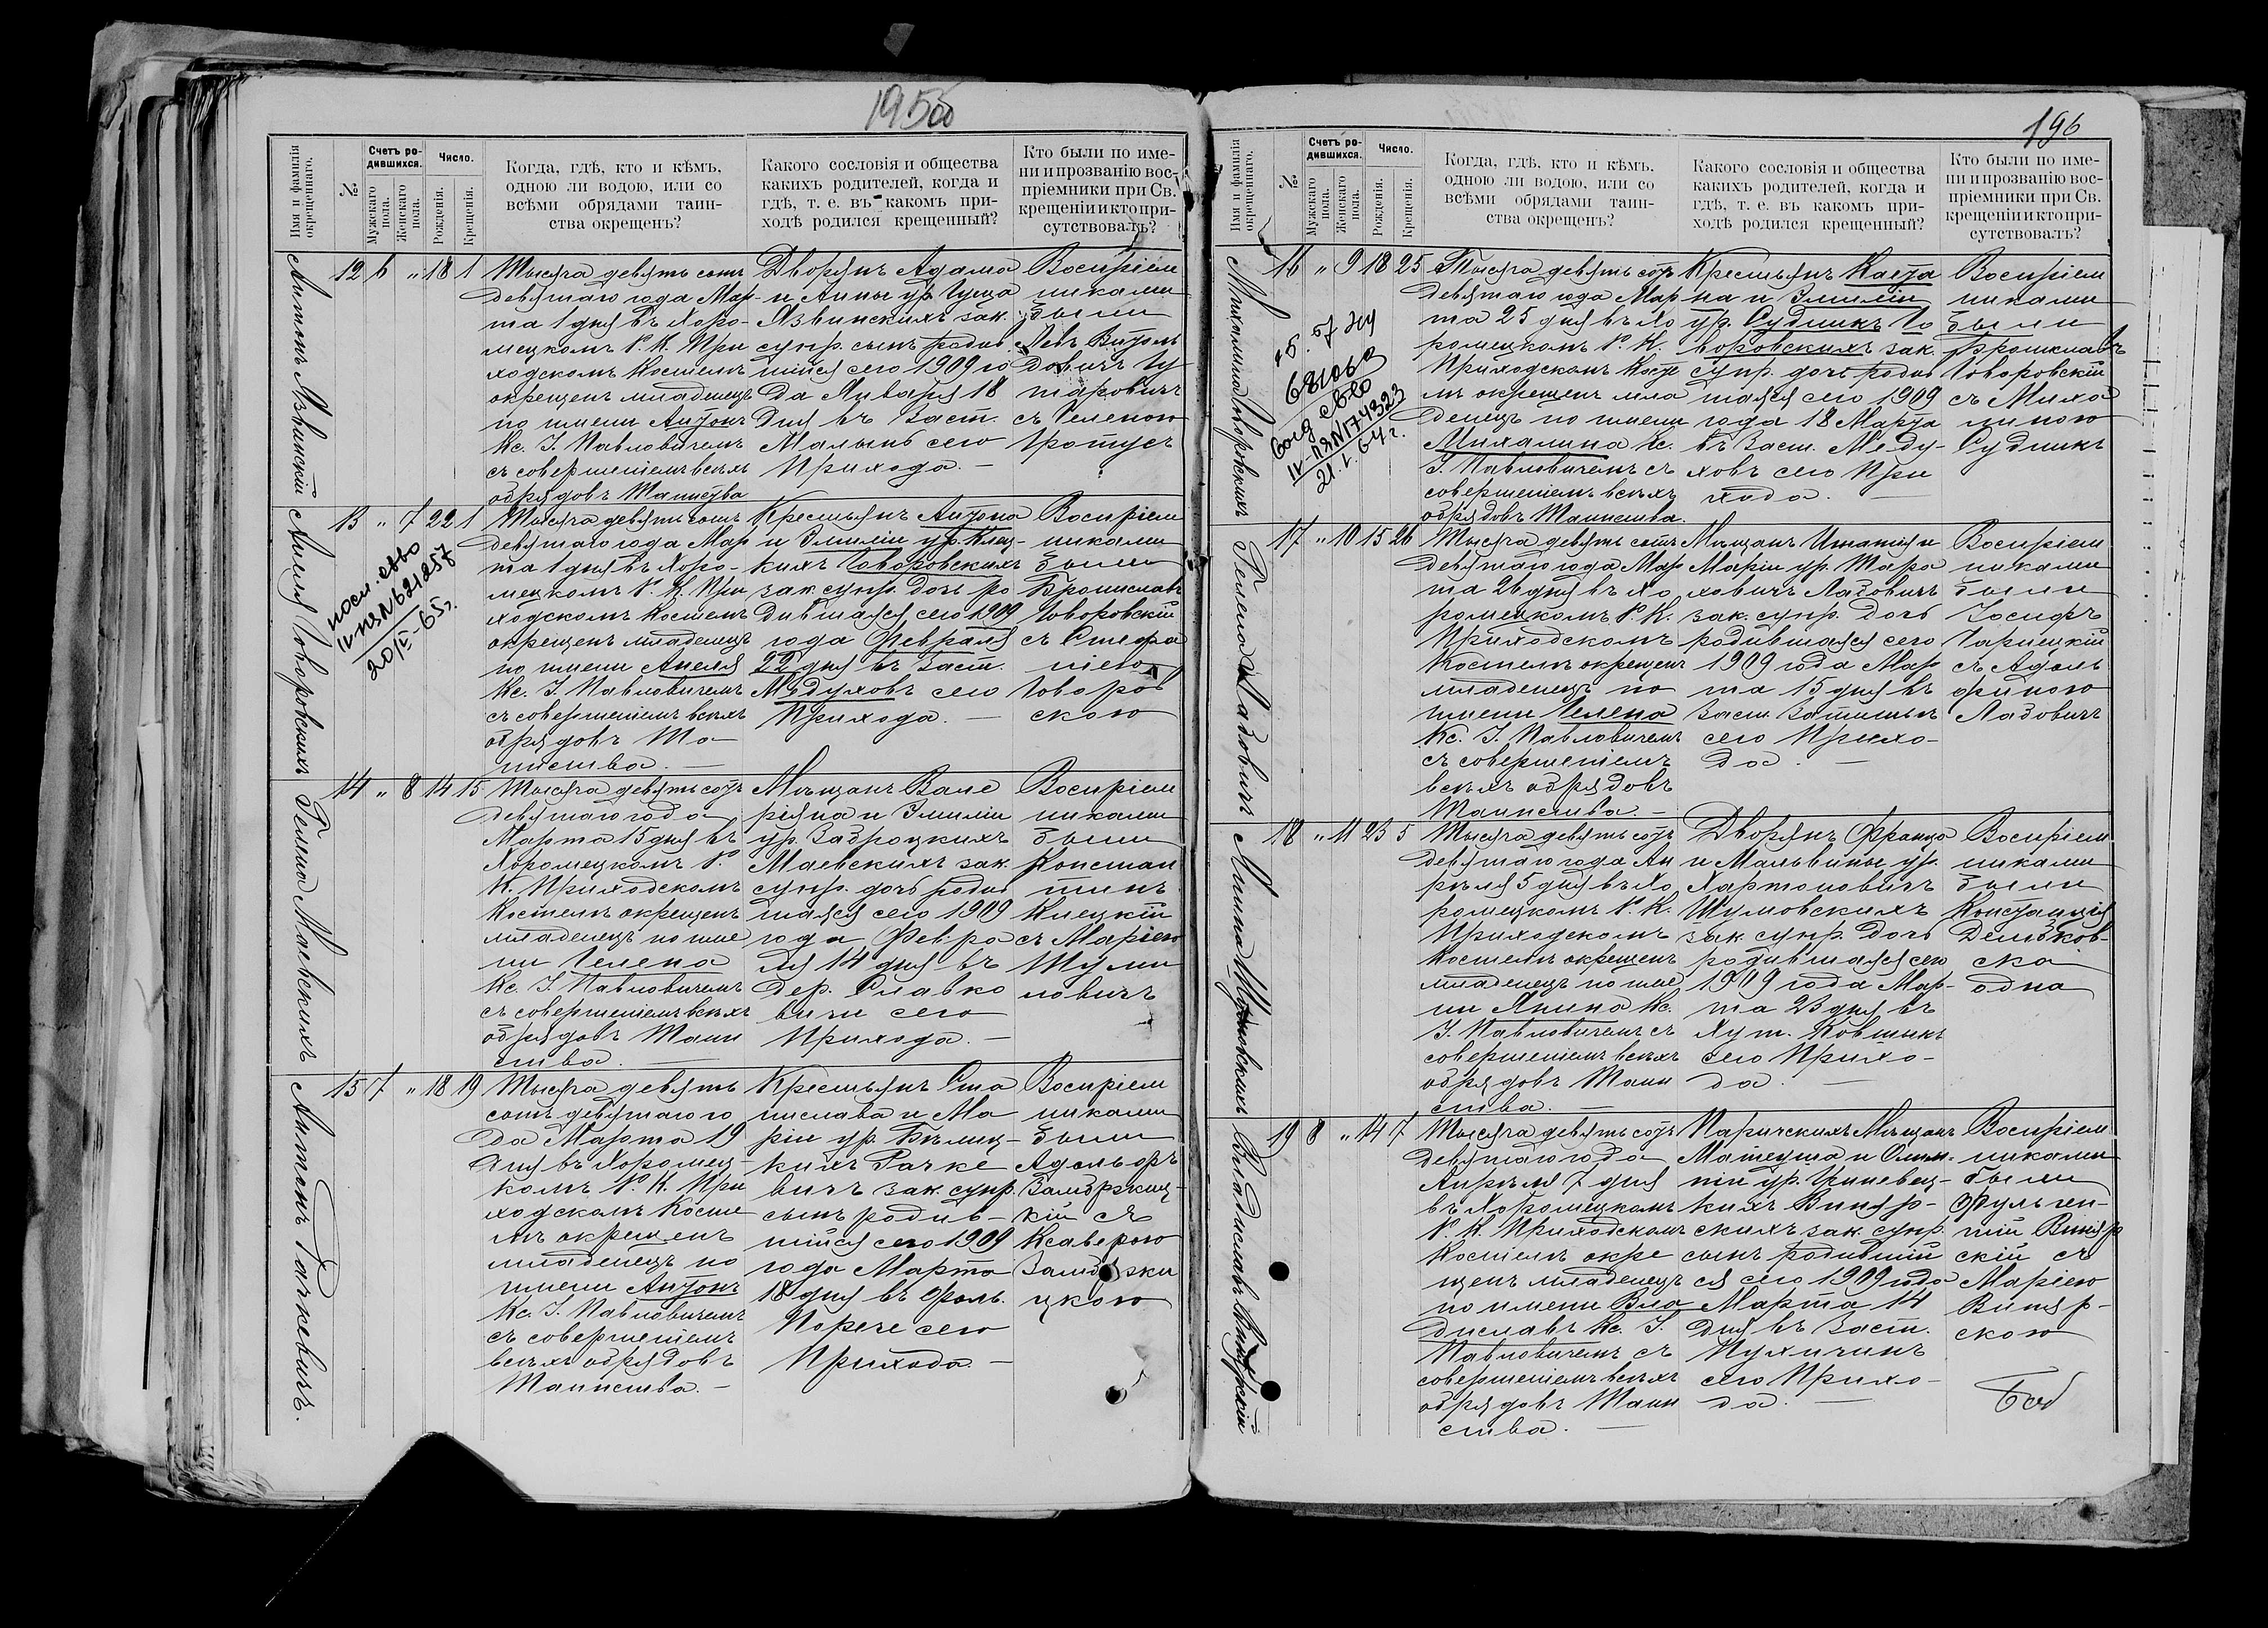 195об
Имя и фамилія окрещеннаго.
№
Счетъ родившихся.
Мужскаго пола.
Женскаго пола.
Число.
Рожденія.
Крещенія.
Когда, гдѣ, кто и кѣмъ,
одною ли водою, или со
всѣми обрядами таин-
ства окрещенъ?
Какого сословія и общества
какихъ родителей, когда и
гдѣ, т. е. въ какомъ при-
ходѣ родился крещенный?
Кто были по име-
ни и прозванію вос-
пріемники при Св.
крещеніи и кто при-
сутствовалъ?
Антонъ Язвинскій
12 6 „ 18 1
Тысяча девять сотъ
девятаго года Мар-
та 1 дня въ Хоро-
мецкомъ Р. К. При
ходскомъ Костелѣ
окрещенъ младенецъ
по имени Антонъ
Кс. І. Павловичемъ
съ совершеніемъ всѣхъ
обрядовъ Таинства
Дворянъ Адама
и Анны ур. Гуща
Язвинскихъ зак.
супр. сынъ родив
шійся сего 1909 го
да Января 18
дня въ заст.
Малынь сего
Прихода. —
Воспріем
никами
были
Левъ Витоль
довичъ Гу
таровичъ
съ Геленою
Протусъ
Анеля Говоровскихъ
13 „ 7 22 1
посл. св-во
IV ПЯ № 621257
20/II-65г.
Тысяча девять сотъ
девятаго года Мар
та 1 дня въ Хоро-
мецкомъ Р. К. При
ходскомъ Костелѣ
окрещенъ младенецъ
по имени Анеля
Кс. І. Павловичемъ
съ совершеніемъ всѣхъ
обрядовъ Та-
инства. —
Крестьянъ Антона
и Эмиліи ур. Клец-
кихъ Говоровскихъ
зак. супр. дочь ро
дившаяся сего 1909
года Февраля
22 дня въ заст.
Медуховъ сего
Прихода. —
Воспріем
никами
были
Брониславъ
Говоровскій
съ Стефа
ніею
Говоров
скою
Гелена Маевскихъ
14 „ 8 14 15
Тысяча девять сотъ
девятаго года
Марта 15 дня въ
Хоромецкомъ Р.
К. Приходскомъ
Костелѣ окрещенъ
младенецъ по име
ни Гелена
Кс. І. Павловичемъ
съ совершеніемъ всѣхъ
обрядовъ Таин
ства. —
Мѣщанъ Вале
ріяна и Эмиліи
ур. Забродцкихъ
Маевскихъ зак.
супр. дочь родив
шаяся сего 1909
года Февра
ля 14 дня въ
дер. Славко
вичи сего
Прихода. —
Воспріем
никами
были
Констан
тинъ
Клецкій
съ Маріею
Шуми
ловичъ
Антонъ Рачкевичъ.
15 7 „ 18 19
Тысяча девять
сотъ девятаго го
да Марта 19
дня въ Хоромец-
комъ Р. К. При
ходскомъ Косте
лѣ окрещенъ
младенецъ по
имени Антонъ
Кс. І. Павловичемъ
съ совершеніемъ
всѣхъ обрядовъ
Таинства. —
Крестьянъ Ста
нислава и Ма
ріи ур. Бѣлиц-
кихъ Рачке
вичъ зак. супр.
сынъ родив-
шійся сего 1909
года Марта
18 дня въ фоль.
Поречье сего
Прихода. —
Воспріем
никами
были
Адольфъ
кій съ
Ксаверою
цкою
196
Имя и фамилія окрещеннаго.
№
Счетъ родившихся.
Мужскаго пола.
Женскаго пола.
Число.
Рожденія.
Крещенія.
Когда, гдѣ, кто и кѣмъ,
одною ли водою, или со
всѣми обрядами таин-
ства окрещенъ?
Какого сословія и общества
какихъ родителей, когда и
гдѣ, т. е. въ какомъ при-
ходѣ родился крещенный?
Кто были по име-
ни и прозванію вос-
пріемники при Св.
крещеніи и кто при-
сутствовалъ?
Михалина Говоровскихъ
16 „ 9 18 25
IV-ПЯ № 174323
21.V.64г.
Тысяча девять сотъ
девятаго года Мар
та 25 дня въ Хо
ромецкомъ Р. К.
Приходскомъ Косте
лѣ окрещенъ мла
денецъ по имени
Михалина Кс.
І. Павловичемъ съ
совершеніемъ всѣхъ
обрядовъ Таинства.
Крестьянъ Каэта
на и Эмиліи
ур. Судникъ Го
воровскихъ зак.
супр. дочь родив
шаяся сего 1909
года 18 Марта
въ заст. Меду-
ховъ сего При
хода. —
Воспріем
никами
были
Брониславъ
Говоровскій
съ Миха
линою
Судникъ
Гелена Лазовичъ
17 „ 10 15 26
Тысяча девять сотъ
девятаго года Мар
та 26 дня въ Хо
ромецкомъ Р. К.
Приходскомъ
Костелѣ окрещенъ
младенецъ по
имени Гелена
Кс. І. Павловичемъ
съ совершеніемъ
всѣхъ обрядовъ
Таинства. —
Мѣщанъ Игнатія и
Маріи ур. Тара
ховичъ Лазовичъ
зак. супр. дочь
родившаяся сего
1909 года Мар
та 15 дня въ
заст. Затишье
сего Прихо-
да. —
Воспріем
никами
были
Іосифъ
Гарницкій
съ Адоль
финою
Лазовичъ
Янина Шумовскихъ
18 „ 11 23 5
Тысяча девять сотъ
девятаго года Ап
рѣля 5 дня въ Хо
ромецкомъ Р. К.
Приходскомъ
Костелѣ окрещенъ
младенецъ по име
ни Янина Кс.
І. Павловичемъ съ
совершеніемъ всѣхъ
обрядовъ Таин
ства. —
Дворянъ Франца
и Мальвины ур.
Харитоновичъ
Шумовскихъ
зак. супр. дочь
родившаяся сего
1909 года Мар-
та 23 дня въ
хут. Ковшыкъ
сего Прихо-
да. —
Воспріем
никами
были
Констанція
Дембков-
ска
одна
Владиславъ Винярскій
19 8 „ 14 7
Тысяча девять сотъ
девятаго года
Апрѣля 7 дня
въ Хоромецкомъ
Р. К. Приходскомъ
Костелѣ окре
щенъ младенецъ
по имени Вла
диславъ Кс. І.
Павловичемъ съ
совершеніемъ всѣхъ
обрядовъ Таин
ства. —
Паричскихъ Мѣщанъ
Матеуша и Олим-
піи ур. Гриневец-
кихъ Виняр-
скихъ зак. супр.
сынъ родившій
ся сего 1909 года
Марта 14
дня въ заст.
Пухичинъ
сего Прихо-
да. —
Воспріем
никами
были
Фульген-
тій Виняр
скій съ
Маріею
Виняр-
скою